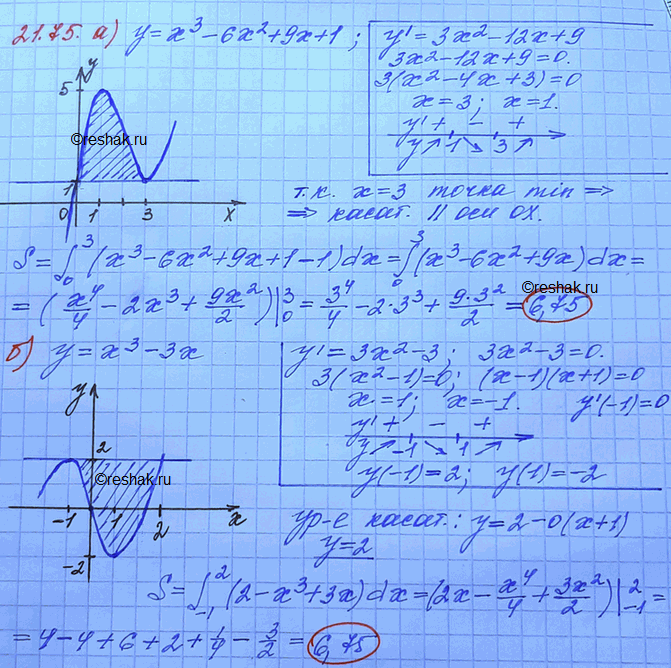 21.75. а) y = x³ – 6x² + 9x + 1 ;
y' = 3x² – 12x + 9
3x² – 12x + 9 = 0.
3(x² – 4x + 3) = 0
x = 3 ; x = 1.
y' + – +
y ↗ 1 ↘ 3 ↗
y
5
©reshak.ru
1
0 1 3 x
т.к. x = 3 точка min ⇒
⇒ касат. || оси OX.
S = ∫₀³ (x³ – 6x² + 9x + 1 – 1)dx = ∫₀³ (x³ – 6x² + 9x)dx =
= (x⁴/4 – 2x³ + 9x²/2)|₀³ = 3⁴/4 – 2·3³ + 9·3²/2 = 6,75
б) y = x³ – 3x
y' = 3x² – 3 ; 3x² – 3 = 0.
3(x² – 1) = 0; (x – 1)(x + 1) = 0
x = 1; x = –1. y'(–1) = 0
y' + – +
y ↗ –1 ↘ 1 ↗
y(–1) = 2; y(1) = –2
y
2
©reshak.ru
–1 1 2 x
–2
ур-е касат.: y = 2 – 0(x + 1)
y = 2
S = ∫₋₁² (2 – x³ + 3x)dx = (2x – x⁴/4 + 3x²/2)|₋₁² =
= 4 – 4 + 6 + 2 + 1/4 – 3/2 = 6,75